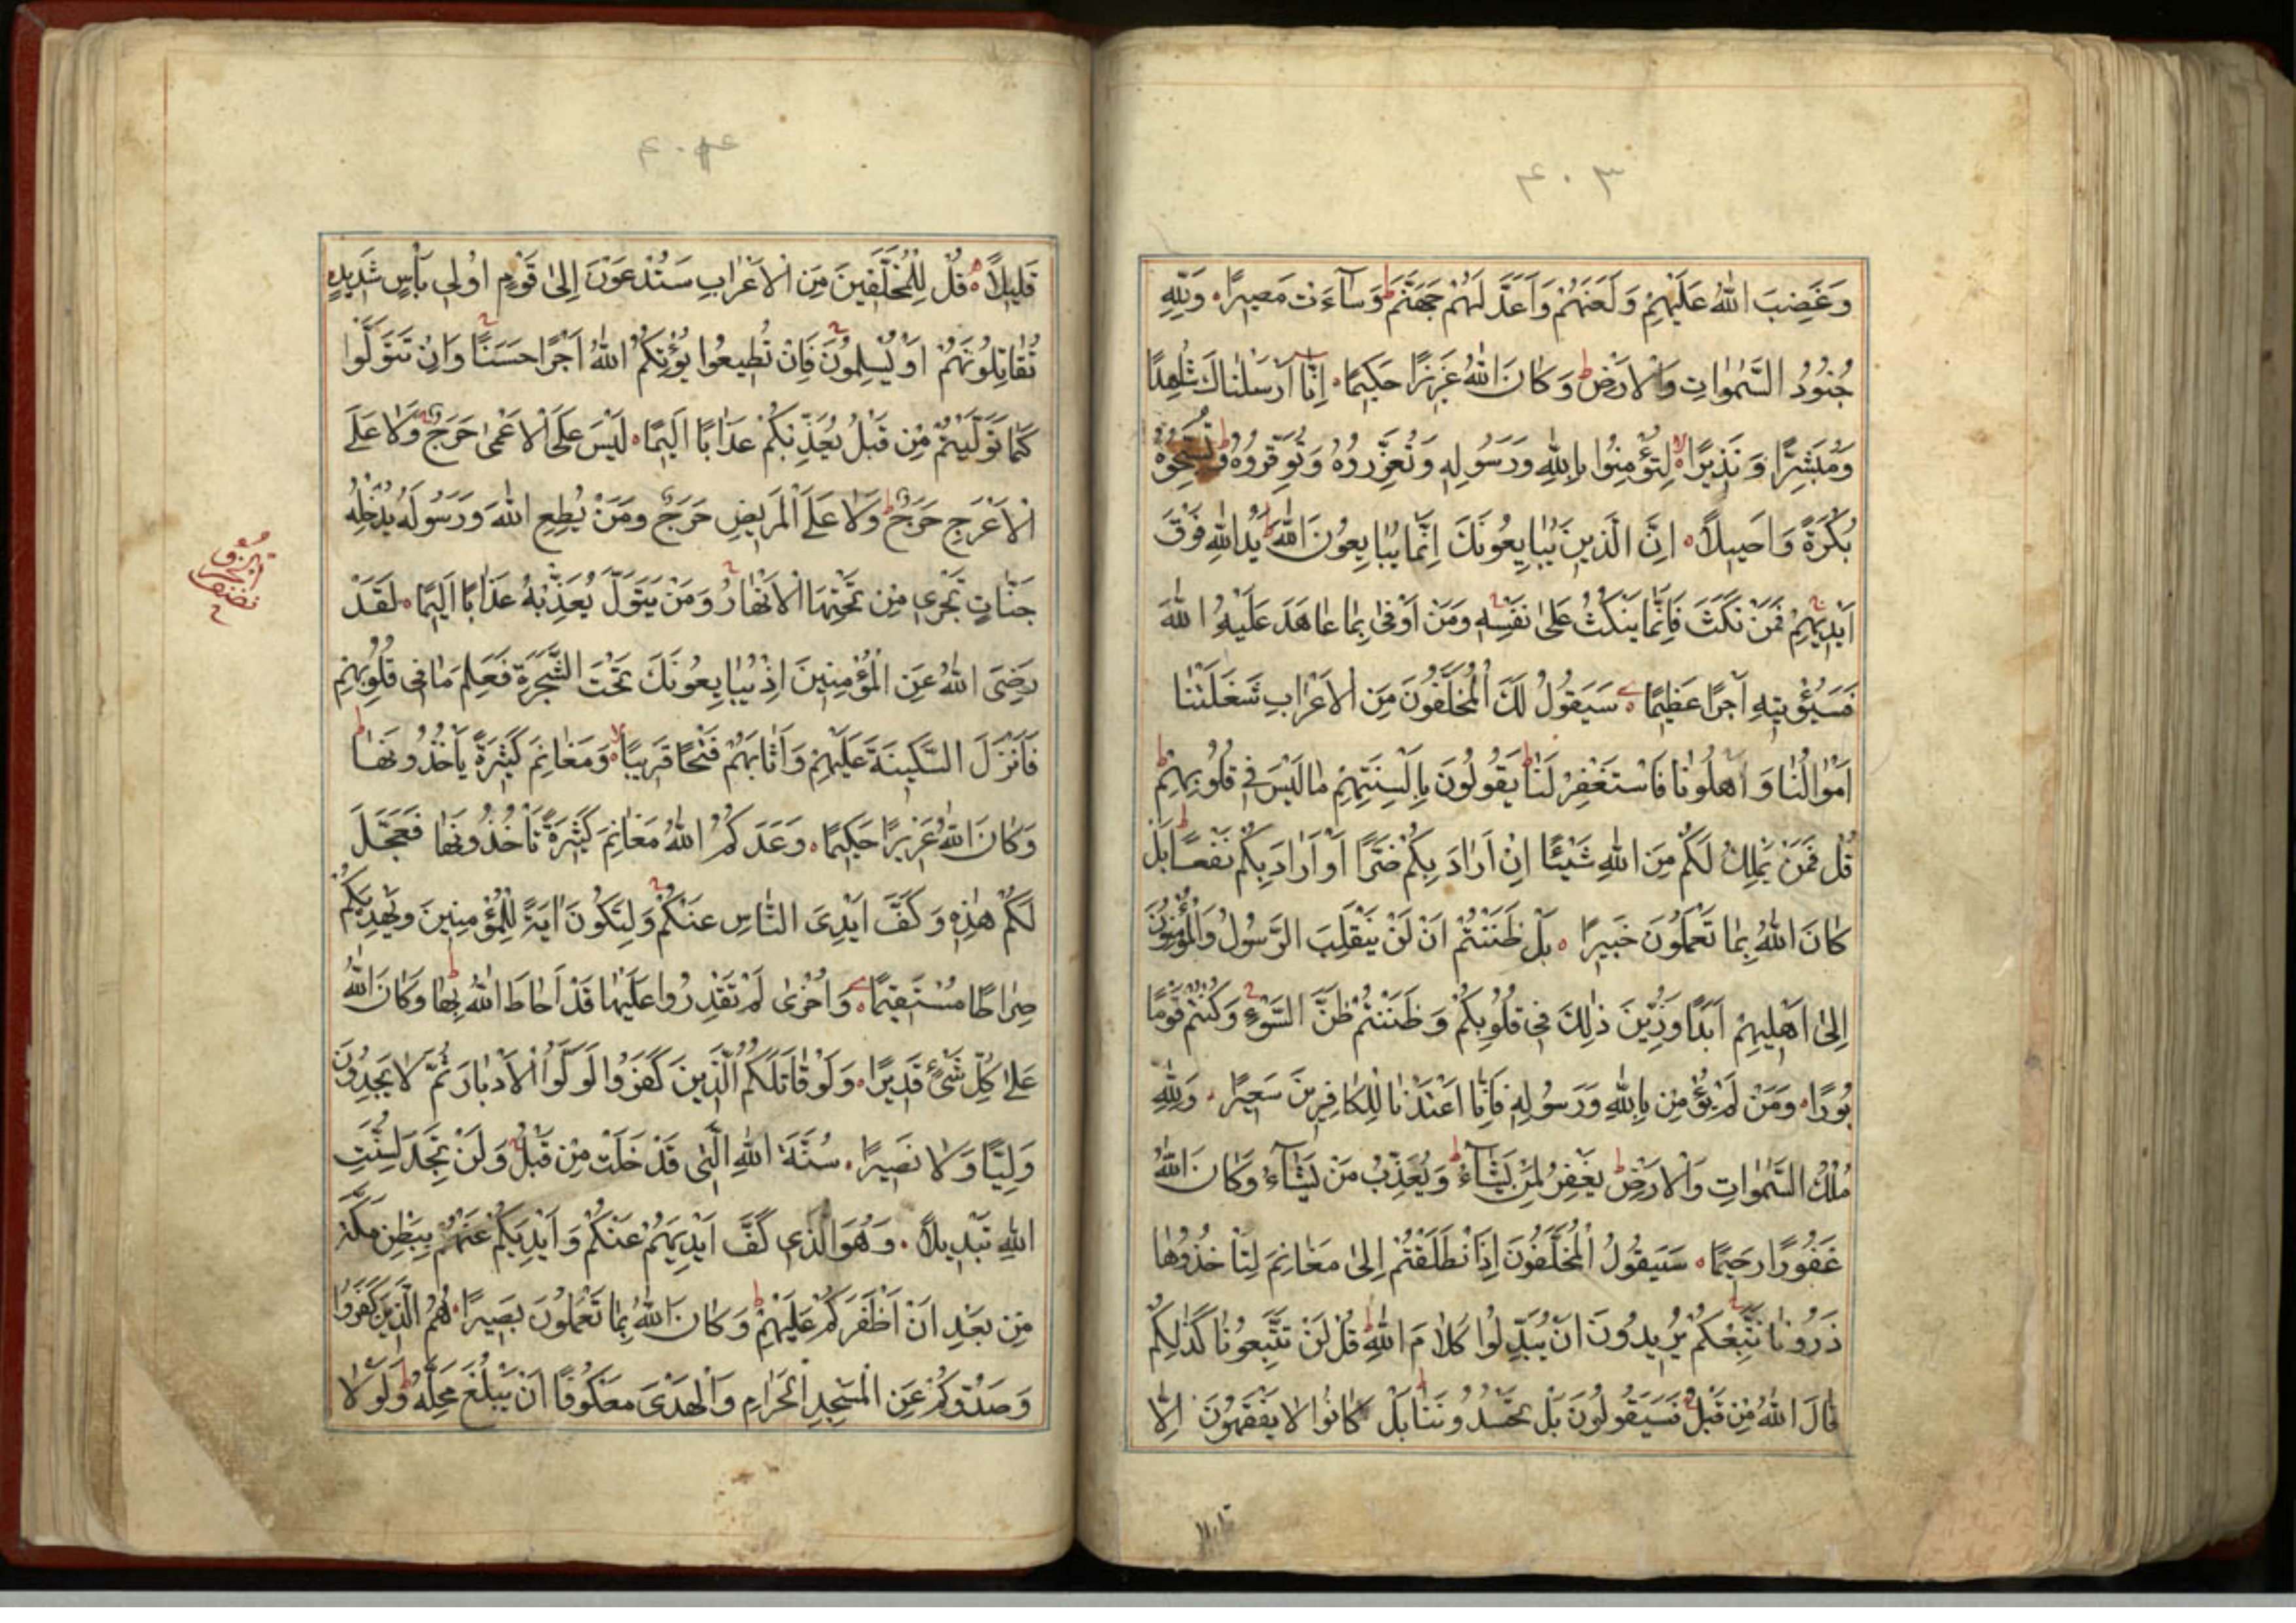 ٤٠٣
وَغَضِبَ اللهُ عَلَيْهِمْ وَلَعَنَهُمْ وَاَعَدَّ لَهُمْ جَهَنَّمَ ط وَسَآءَتْ مَصِيرًا وَلِلّٰهِ
جُنُودُ السَّمٰوَاتِ وَالْاَرْضِ ط وَكَانَ اللهُ عَزِيزًا حَكِيمًا اِنَّٓا اَرْسَلْنَاكَ شَاهِدًا
وَمُبَشِّرًا وَنَذِيرًا لا لِتُؤْمِنُوا بِاللهِ وَرَسُولِهِ وَتُعَزِّرُوهُ وَتُوَقِّرُوهُ ط وَتُسَبِّحُوهُ
بُكْرَةً وَاَصِيلًا اِنَّ الَّذِينَ يُبَايِعُونَكَ اِنَّمَا يُبَايِعُونَ اللهَ ط يَدُ اللهِ فَوْقَ
اَيْدِيهِمْ ج فَمَنْ نَكَثَ فَاِنَّمَا يَنْكُثُ عَلٰى نَفْسِهِ ج وَمَنْ اَوْفٰى بِمَا عَاهَدَ عَلَيْهُ اللهَ
فَسَيُؤْتِيهِ اَجْرًا عَظِيمًا سَيَقُولُ لَكَ الْمُخَلَّفُونَ مِنَ الْاَعْرَابِ شَغَلَتْنَا
اَمْوَالُنَا وَاَهْلُونَا فَاسْتَغْفِرْ لَنَا ط يَقُولُونَ بِاَلْسِنَتِهِمْ مَا لَيْسَ فِي قُلُوبِهِمْ ط
قُلْ فَمَنْ يَمْلِكُ لَكُمْ مِنَ اللهِ شَيْئًا اِنْ اَرَادَ بِكُمْ ضَرًّا اَوْ اَرَادَ بِكُمْ نَفْعًا ط بَلْ
كَانَ اللهُ بِمَا تَعْمَلُونَ خَبِيرًا بَلْ ظَنَنْتُمْ اَنْ لَنْ يَنْقَلِبَ الرَّسُولُ وَالْمُؤْمِنُونَ
اِلٰى اَهْلِيهِمْ اَبَدًا وَزُيِّنَ ذٰلِكَ فِي قُلُوبِكُمْ وَظَنَنْتُمْ ظَنَّ السَّوْءِ ج وَكُنْتُمْ قَوْمًا
بُورًا وَمَنْ لَمْ يُؤْمِنْ بِاللهِ وَرَسُولِهِ فَاِنَّا اَعْتَدْنَا لِلْكَافِرِينَ سَعِيرًا وَلِلّٰهِ
مُلْكُ السَّمٰوَاتِ وَالْاَرْضِ ط يَغْفِرُ لِمَنْ يَشَآءُ وَيُعَذِّبُ مَنْ يَشَآءُ ط وَكَانَ اللهُ
غَفُورًا رَحِيمًا سَيَقُولُ الْمُخَلَّفُونَ اِذَا نْطَلَقْتُمْ اِلٰى مَغَانِمَ لِتَاْخُذُوهَا
ذَرُونَا نَتَّبِعْكُمْ ج يُرِيدُونَ اَنْ يُبَدِّلُوا كَلَامَ اللهِ ط قُلْ لَنْ تَتَّبِعُونَا كَذٰلِكُمْ
قَالَ اللهُ مِنْ قَبْلُ ج فَسَيَقُولُونَ بَلْ تَحْسُدُونَنَا ط بَلْ كَانُوا لَا يَفْقَهُونَ اِلَّا
٤٠٤
قَلِيلًا قُلْ لِلْمُخَلَّفِينَ مِنَ الْاَعْرَابِ سَتُدْعَوْنَ اِلٰى قَوْمٍ اُولِي بَاْسٍ شَدِيدٍ
تُقَاتِلُونَهُمْ اَوْ يُسْلِمُونَ ج فَاِنْ تُطِيعُوا يُؤْتِكُمُ اللهُ اَجْرًا حَسَنًا ج وَاِنْ تَتَوَلَّوْا
كَمَا تَوَلَّيْتُمْ مِنْ قَبْلُ يُعَذِّبْكُمْ عَذَابًا اَلِيمًا لَيْسَ عَلَى الْاَعْمٰى حَرَجٌ وَلَا عَلَى
الْاَعْرَجِ حَرَجٌ وَلَا عَلَى الْمَرِيضِ حَرَجٌ ط وَمَنْ يُطِعِ اللهَ وَرَسُولَهُ يُدْخِلْهُ
جَنَّاتٍ تَجْرِي مِنْ تَحْتِهَا الْاَنْهَارُ ج وَمَنْ يَتَوَلَّ يُعَذِّبْهُ عَذَابًا اَلِيمًا لَقَدْ
رَضِيَ اللهُ عَنِ الْمُؤْمِنِينَ اِذْ يُبَايِعُونَكَ تَحْتَ الشَّجَرَةِ فَعَلِمَ مَا فِي قُلُوبِهِمْ
فَاَنْزَلَ السَّكِينَةَ عَلَيْهِمْ وَاَثَابَهُمْ فَتْحًا قَرِيبًا لا وَمَغَانِمَ كَثِيرَةً يَاْخُذُونَهَا ط
وَكَانَ اللهُ عَزِيزًا حَكِيمًا وَعَدَكُمُ اللهُ مَغَانِمَ كَثِيرَةً تَاْخُذُونَهَا فَعَجَّلَ
لَكُمْ هٰذِهِ وَكَفَّ اَيْدِيَ النَّاسِ عَنْكُمْ ج وَلِتَكُونَ اٰيَةً لِلْمُؤْمِنِينَ وَيَهْدِيَكُمْ
صِرَاطًا مُسْتَقِيمًا وَاُخْرٰى لَمْ تَقْدِرُوا عَلَيْهَا قَدْ اَحَاطَ اللهُ بِهَا ط وَكَانَ اللهُ
عَلٰى كُلِّ شَيْءٍ قَدِيرًا وَلَوْ قَاتَلَكُمُ الَّذِينَ كَفَرُوا لَوَلَّوُا الْاَدْبَارَ ثُمَّ لَا يَجِدُونَ
وَلِيًّا وَلَا نَصِيرًا سُنَّةَ اللهِ الَّتِي قَدْ خَلَتْ مِنْ قَبْلُ ج وَلَنْ تَجِدَ لِسُنَّتِ
اللهِ تَبْدِيلًا وَهُوَ الَّذِي كَفَّ اَيْدِيَهُمْ عَنْكُمْ وَاَيْدِيَكُمْ عَنْهُمْ بِبَطْنِ مَكَّةَ
مِنْ بَعْدِ اَنْ اَظْفَرَكُمْ عَلَيْهِمْ ط وَكَانَ اللهُ بِمَا تَعْمَلُونَ بَصِيرًا هُمُ الَّذِينَ كَفَرُوا
وَصَدُّوكُمْ عَنِ الْمَسْجِدِ الْحَرَامِ وَالْهَدْيَ مَعْكُوفًا اَنْ يَبْلُغَ مَحِلَّهُ ط وَلَوْلَا